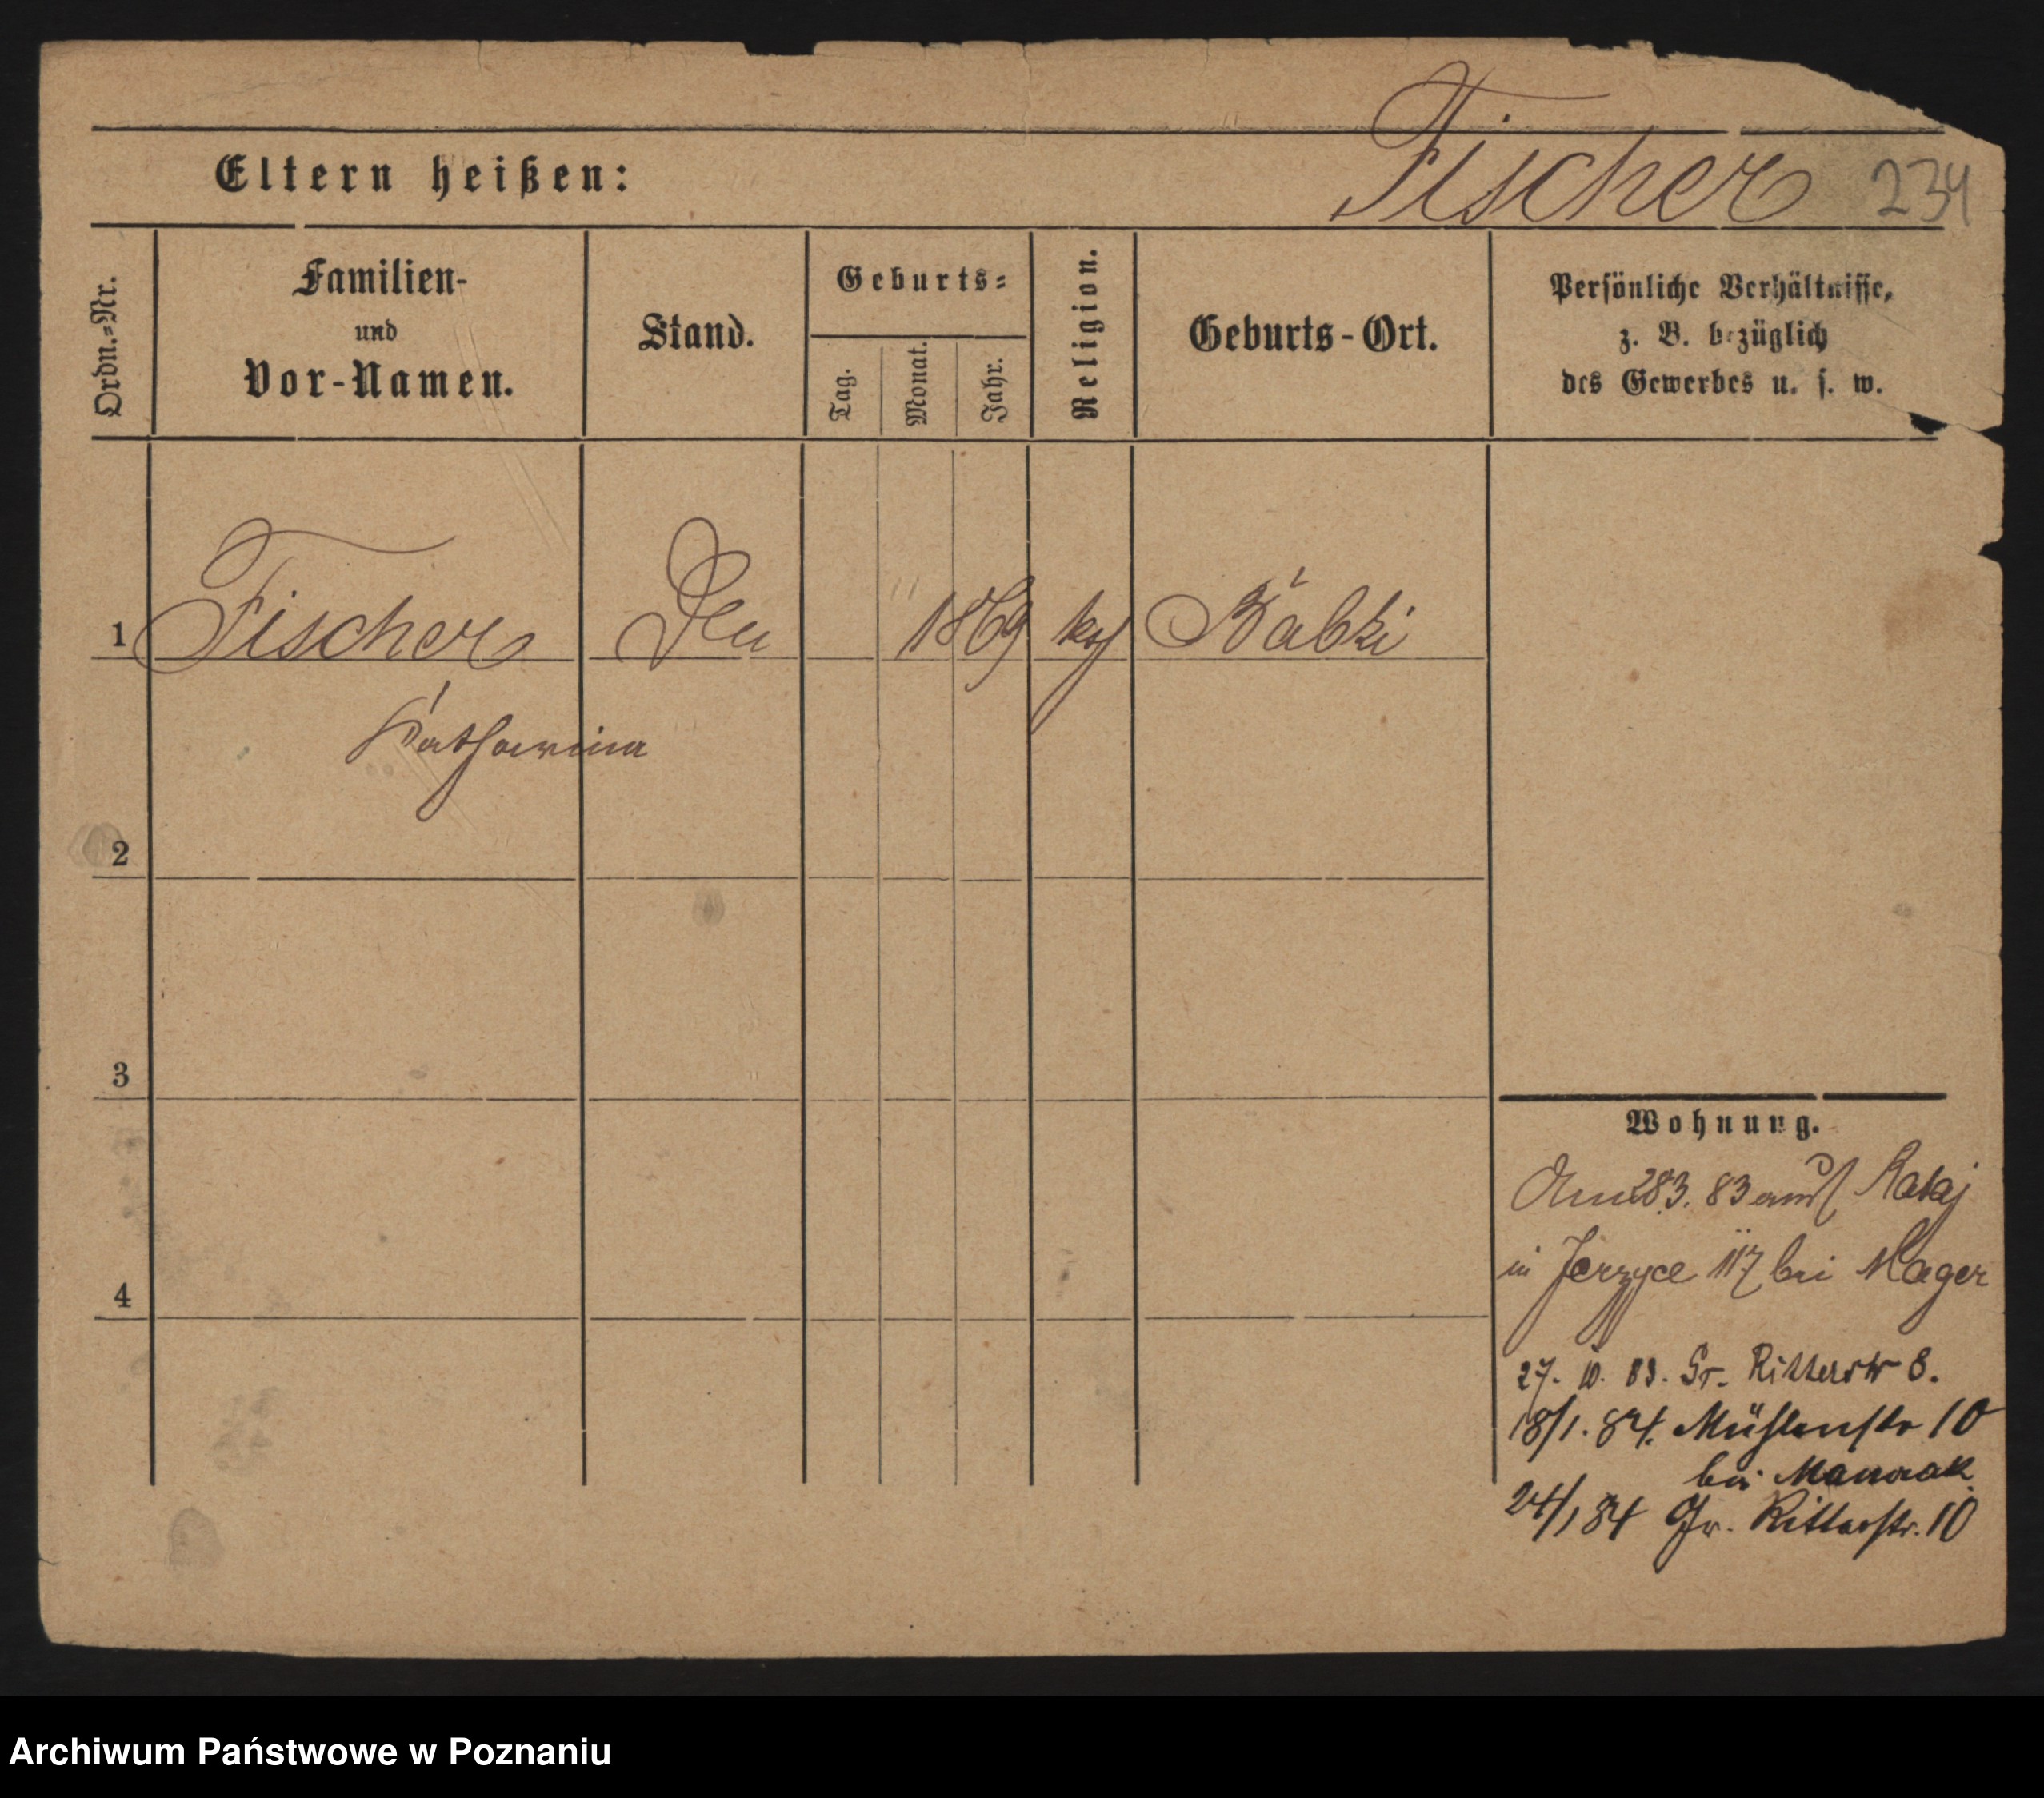 Fischer 234
Eltern heißen:
Ordn.=Nr.
Familien-
und
Vor-Namen.
Stand.
Geburts=
Tag.
Monat.
Jahr.
Religion.
Geburts-Ort.
Persönliche Verhältnisse,
z. B. bezüglich
des Gewerbes u. s. w.
1 Fischer 1869 Bábki
Katharina
2
3
4
Wohnung.
Am 28.3. 83 nach Rataj
in Jerzyce 117 bei Mager
27. 10. 83. Gr. Ritterstr 8.
18/1. 84. Mühlenstr 10
bei
24/1 84 Gr. Ritterstr. 10
Archiwum Państwowe w Poznaniu